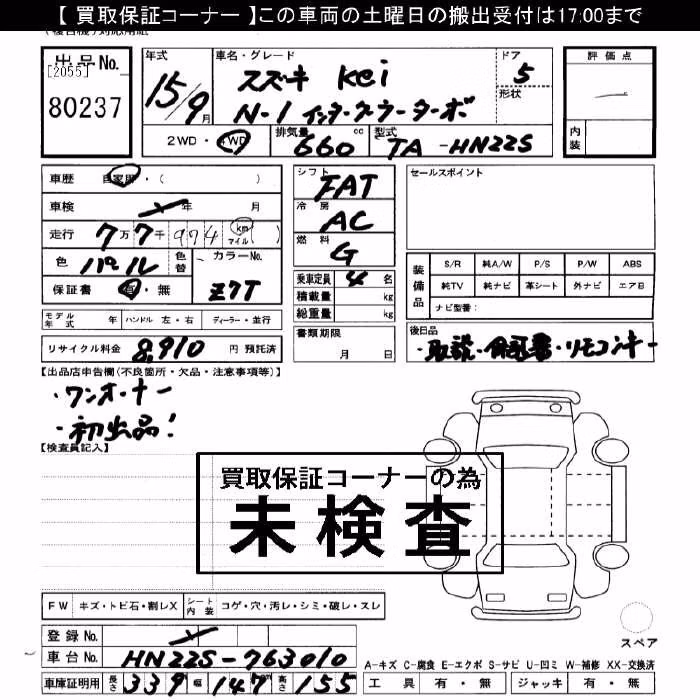 【 買取保証コーナー 】この車両の土曜日の搬出受付は17:00まで
出品No.
[2055]
80237
年式
15/9月
車名・グレード
スズキ Kei
N-1 インタークーラーターボ
ドア
5
形状
評価点
内装
2WD・4WD
排気量
660 cc
型式
TA -HN22S
車歴 自家用・( )
車検 年 月
走行 7万7千974 km マイル ( )
色 パール 色替
カラーNo.
Z7T
保証書 有・無
シフト
FAT
冷房
AC
燃料
G
乗車定員 4 名
積載量 kg
総重量 kg
セールスポイント
装備品
S/R 純A/W P/S P/W ABS
純TV 純ナビ 革シート 外ナビ エアB
ナビ型番:
モデル年式 年 ハンドル 左・右 ディーラー・並行
リサイクル料金 8,910 円 預託済
書類期限
月 日
後日品
・取説・保証書・リモコンキー
【出品店申告欄(不良箇所・欠品・注意事項等)】
・ワンオーナー
・初出品!
【検査員記入】
買取保証コーナーの為
未検査
FW キズ・トビ石・割レX シート内装 コゲ・穴・汚レ・シミ・破レ・スレ
登録No.
車台No. HN22S-763010
車庫証明用 長さ 339 幅 147 高さ 155
スペア
A-キズ C-腐食 E-エクボ S-サビ U-凹ミ W-補修 XX-交換済
工具 有・無 ジャッキ 有・無